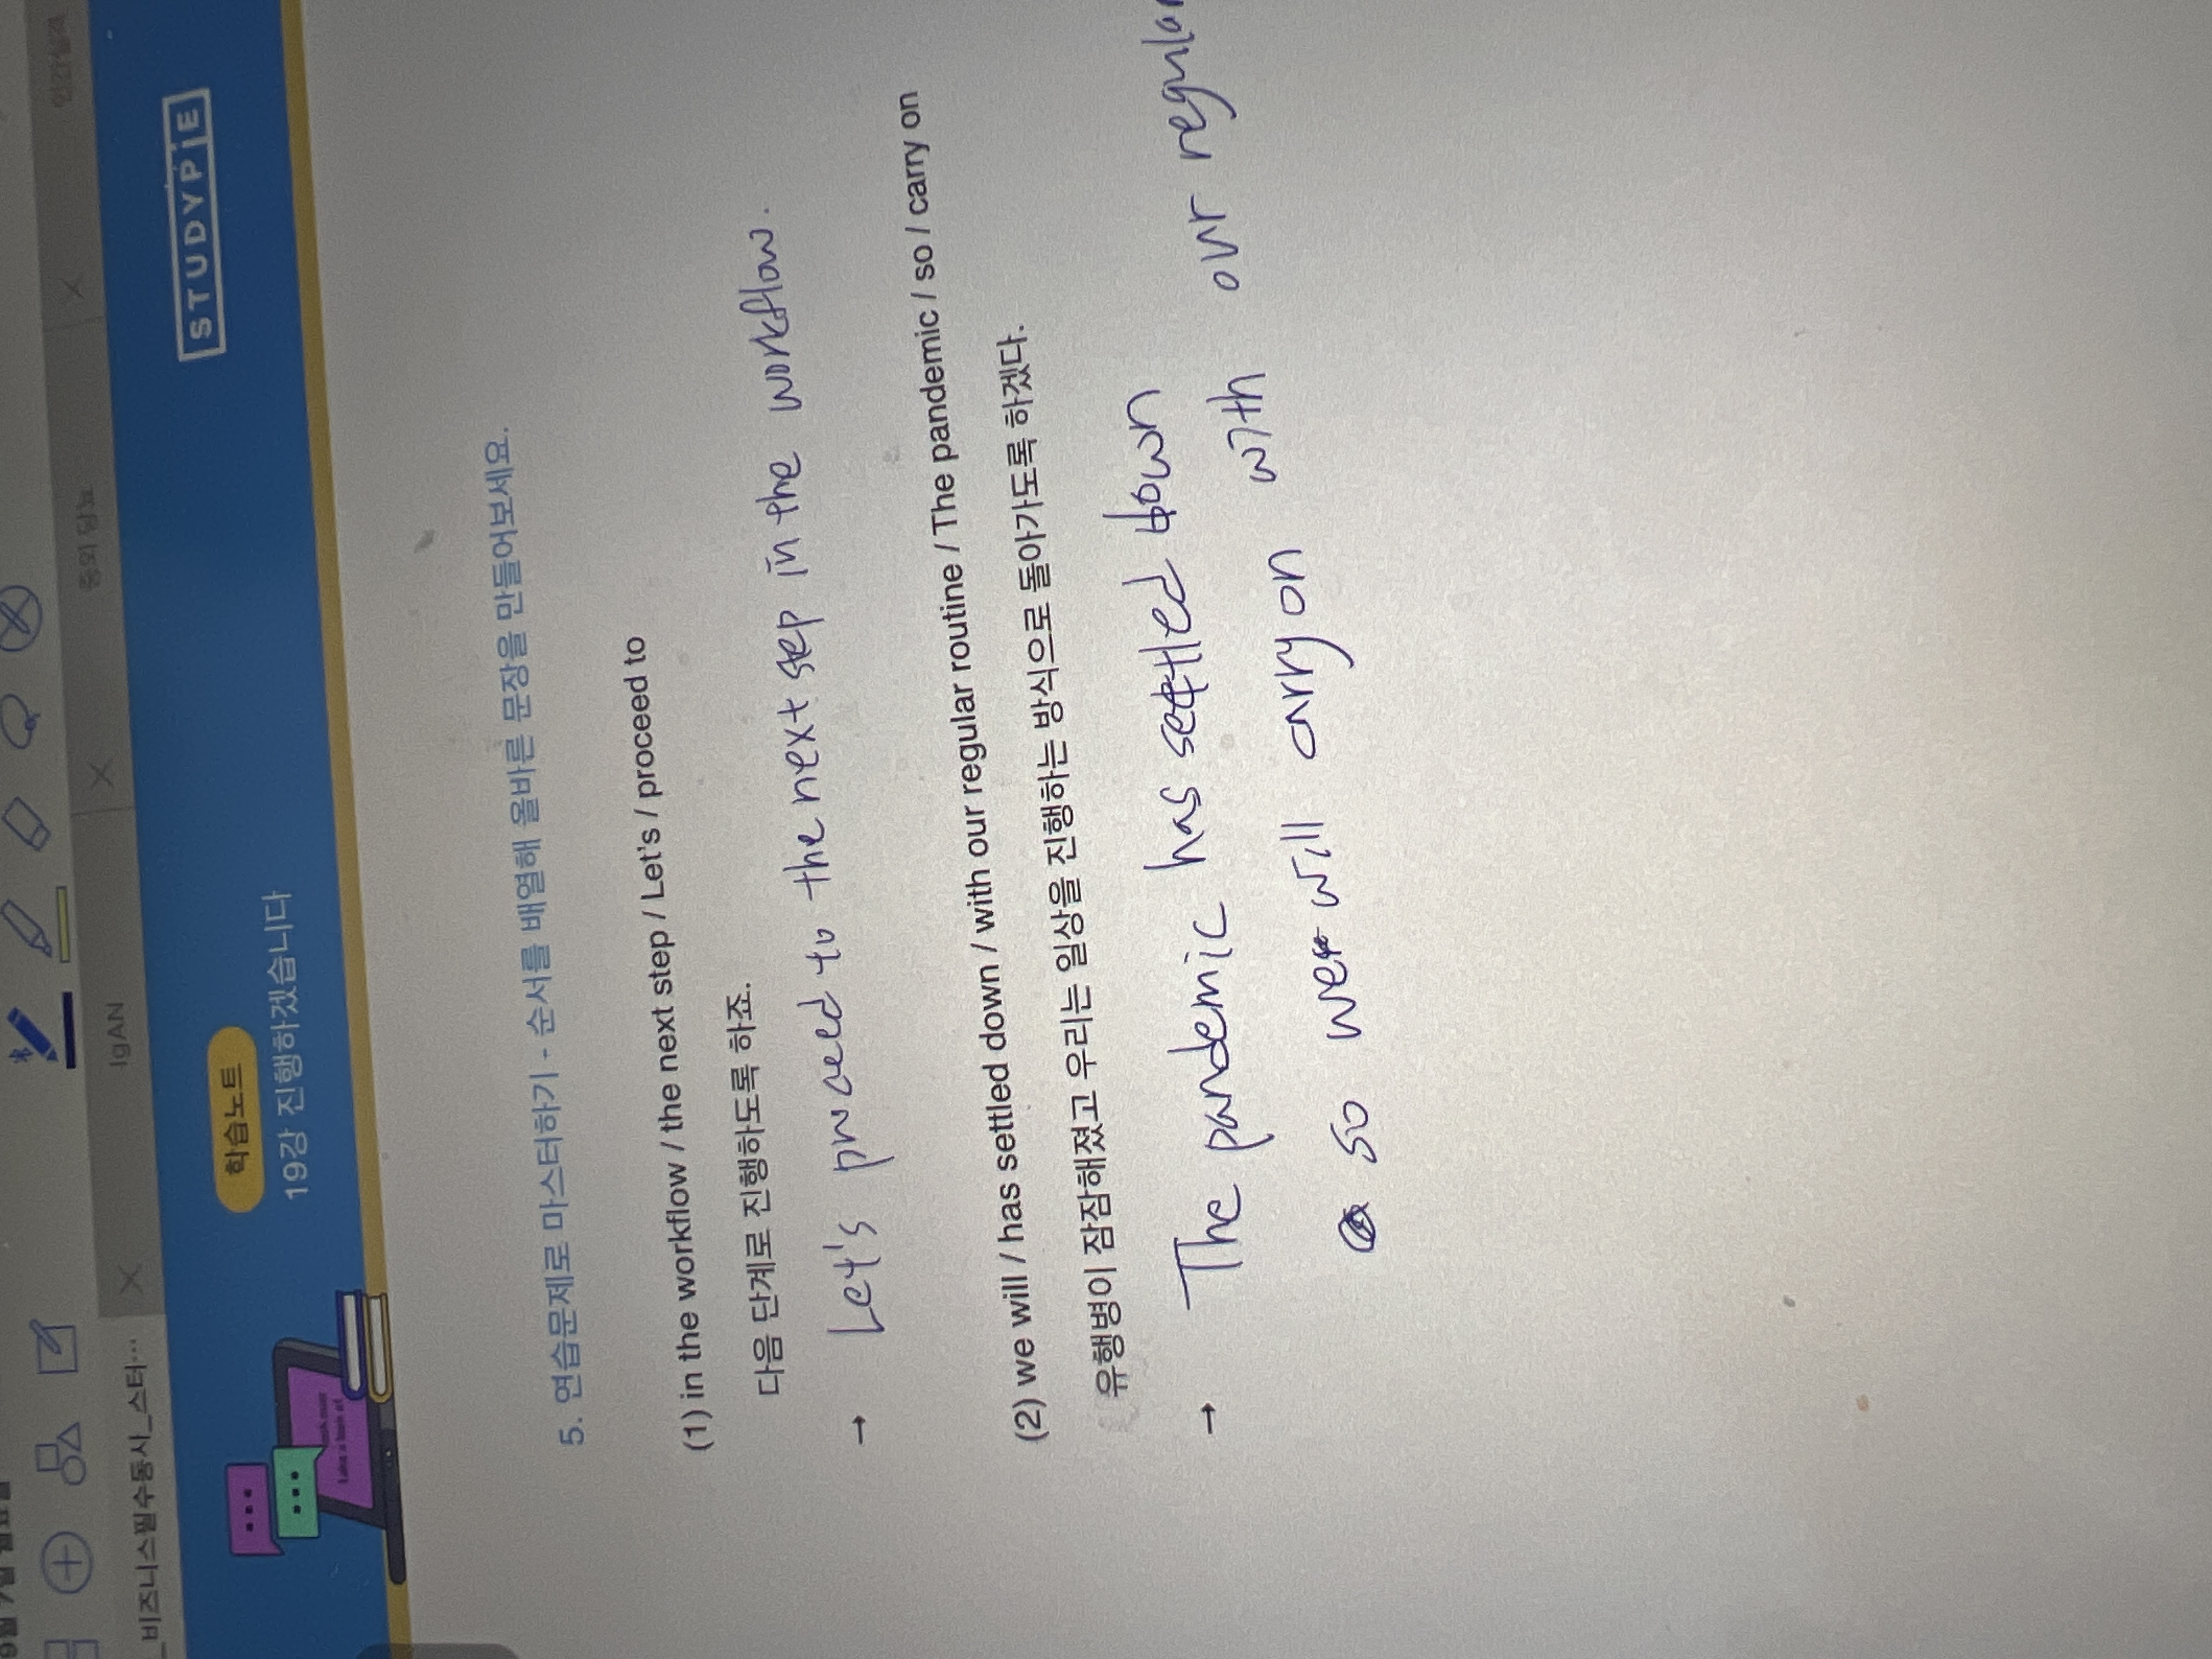 _비즈니스필수동사_스터…
IgAN
중외 당뇨
학습노트
19강 진행하겠습니다
STUDYPIE
5. 연습문제로 마스터하기 - 순서를 배열해 올바른 문장을 만들어보세요.
(1) in the workflow / the next step / Let's / proceed to
다음 단계로 진행하도록 하죠.
→ Let's proceed to the next step in the workflow.
(2) we will / has settled down / with our regular routine / The pandemic / so / carry on
유행병이 잠잠해졌고 우리는 일상을 진행하는 방식으로 돌아가도록 하겠다.
→ The pandemic has settled down
so we will carry on with our regular